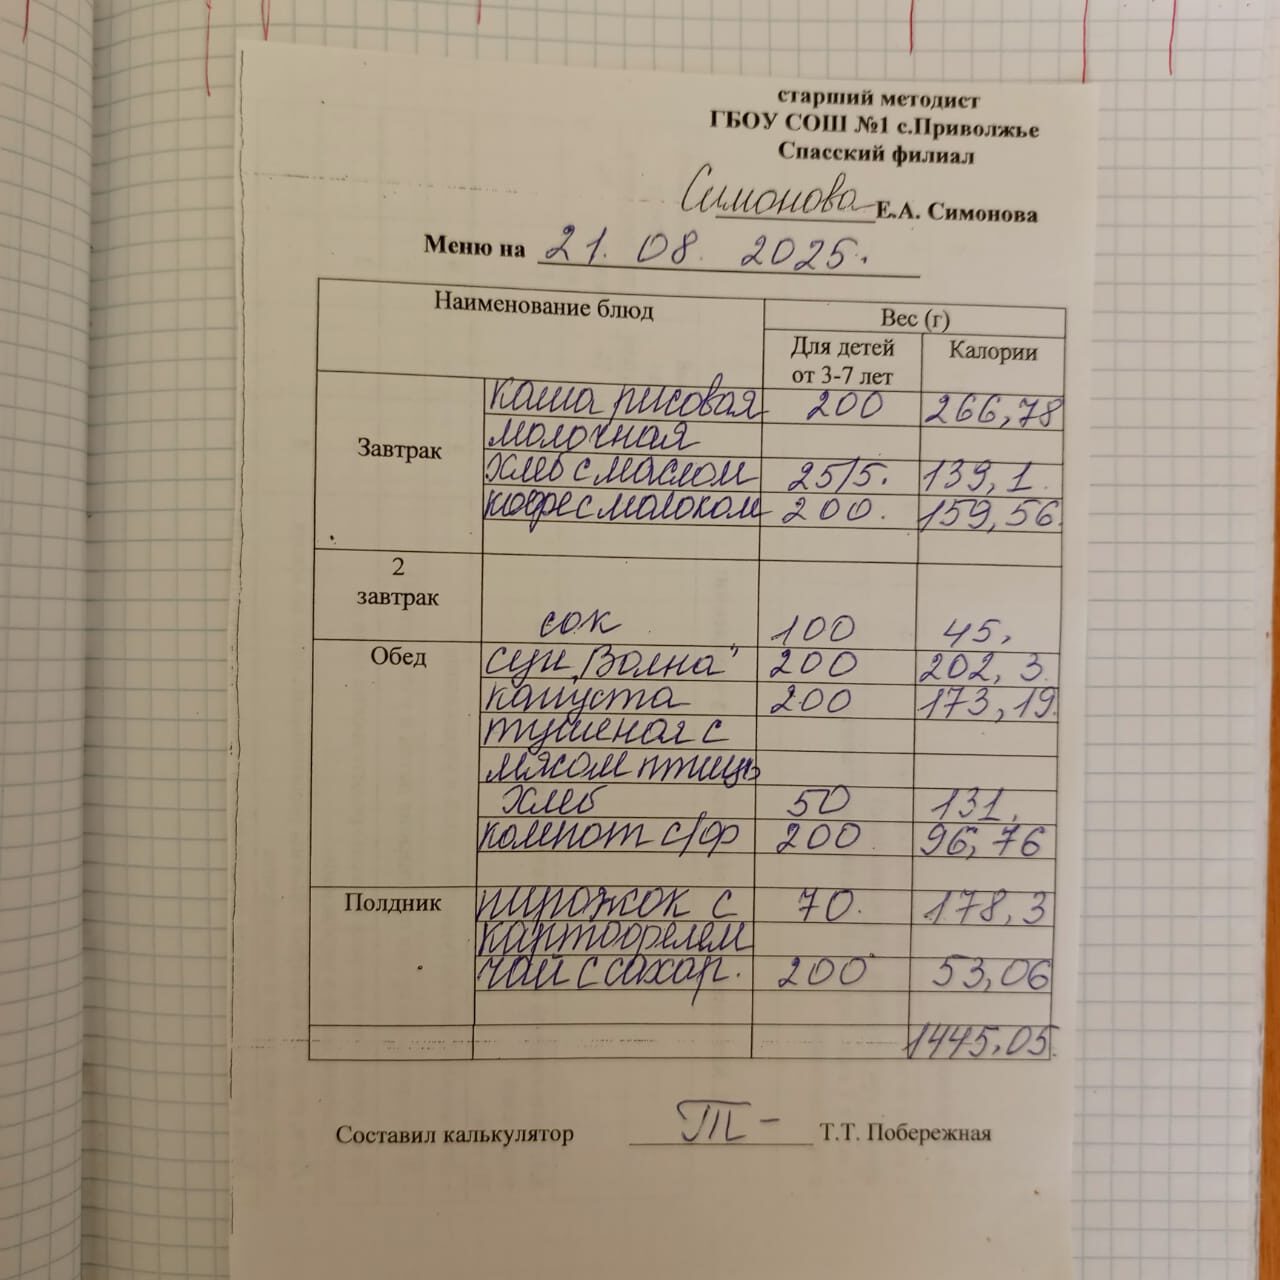 старший методист
ГБОУ СОШ №1 с.Приволжье
Спасский филиал
Симонова Е.А. Симонова
Меню на 21. 08. 2025.
Наименование блюд Вес (г)
Для детей от 3-7 лет Калории
Завтрак
каша рисовая 200 266,78
молочная
хлеб с маслом 25/5. 139,1.
кофе с молоком 200. 159,56.
2 завтрак
сок 100 45,
Обед
суп „Волна" 200 202,3.
капуста 200 173,19.
тушеная с
мясом птицы
хлеб 50 131,
компот с/ф 200 96,76
Полдник
пирожок с 70. 178,3
картофелем
чай с сахар. 200 53,06
1445.05.
Составил калькулятор ТП- Т.Т. Побережная